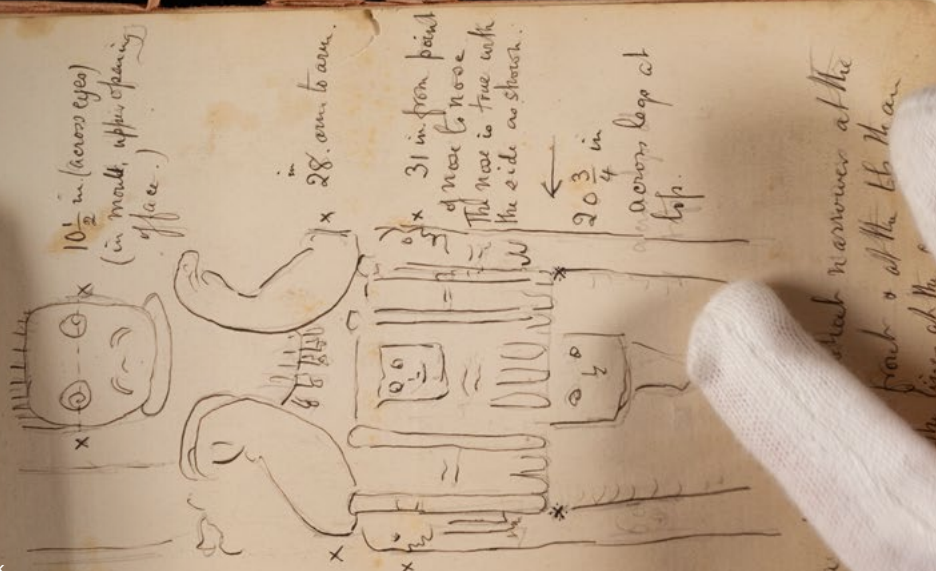 10 1/2 in (across eyes)
(in mouth, upper opening
of face.)
in
28. arm to arm.
31 in from point
of nose to nose
The nose is true with
the side as shown.
20 3/4 in
across legs at
top.
narrower at the
front & at the